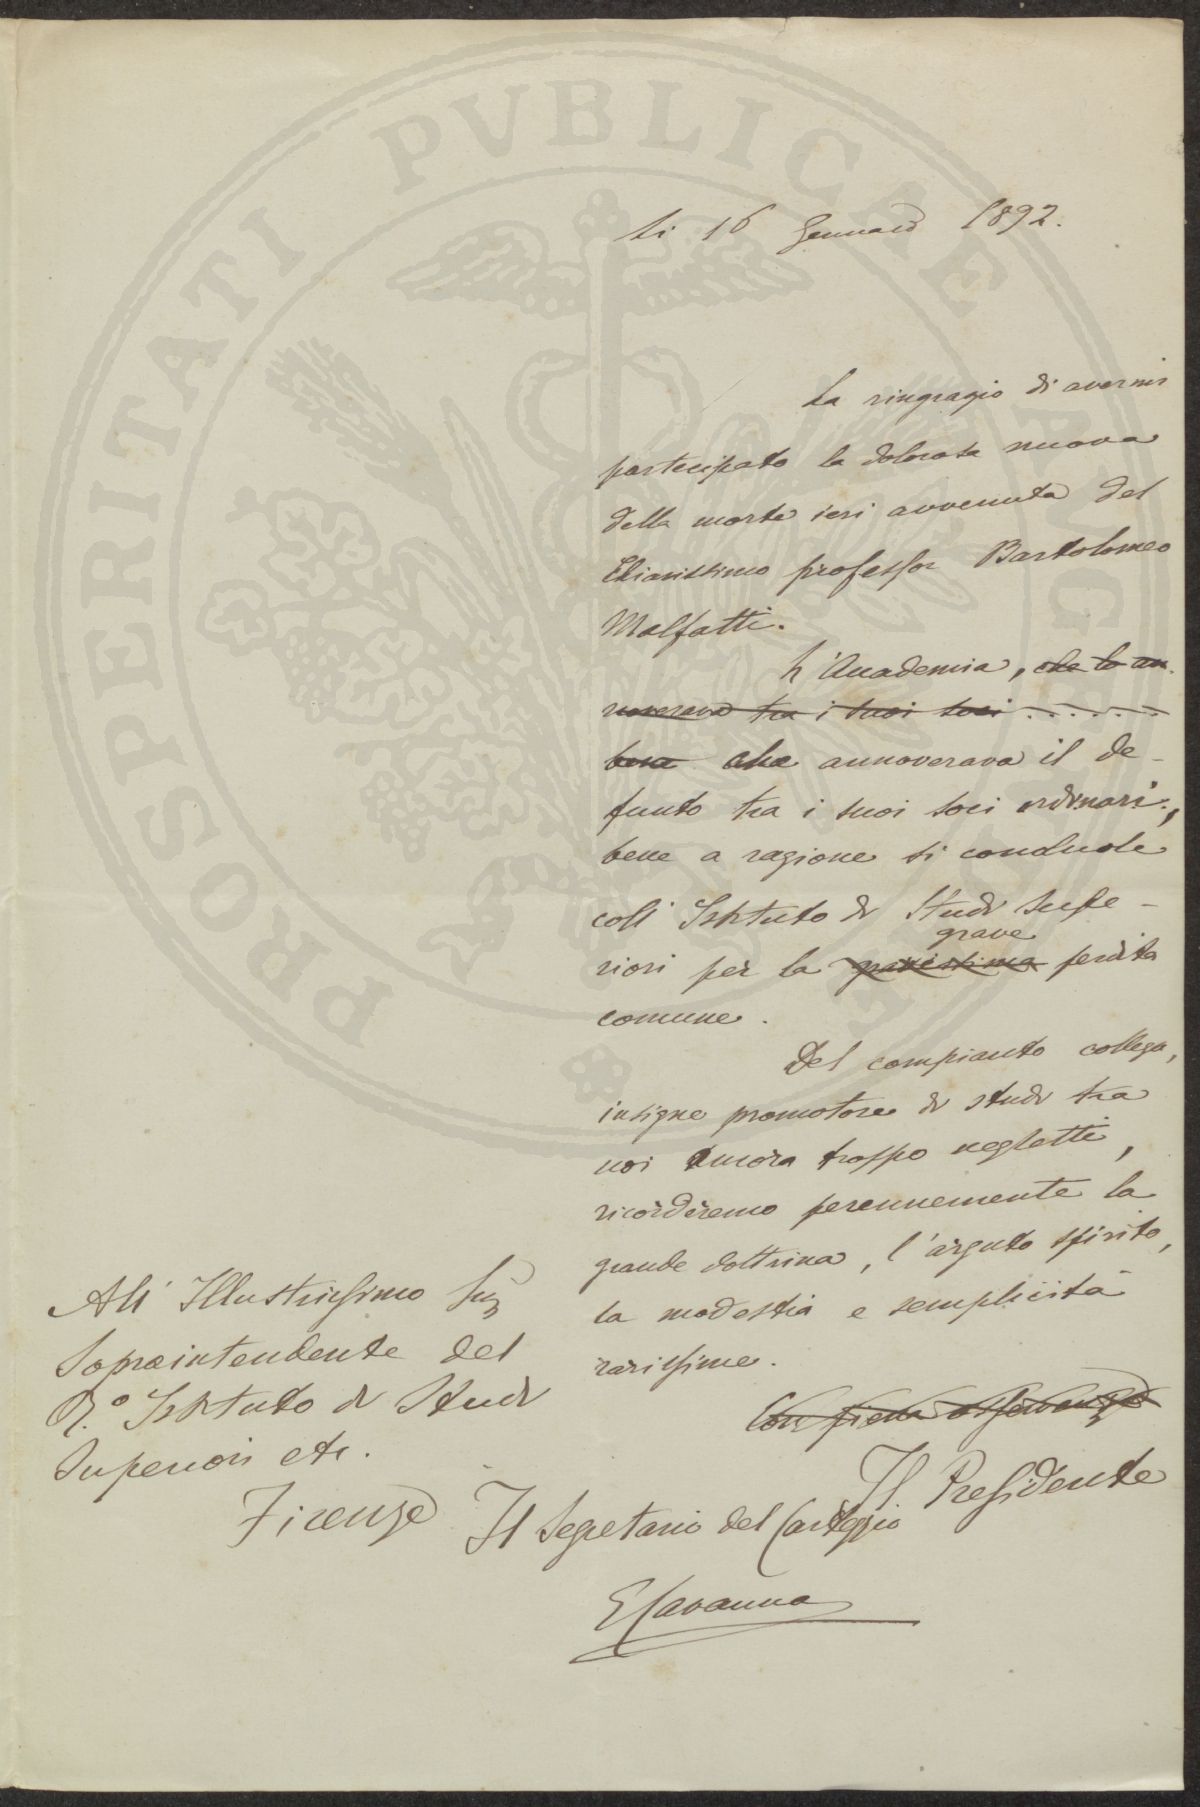 PROSPERITATI PVBLICAE AVGENDAE
li 16 Gennaio 1892.
La ringrazio di avermi
partecipato la dolorosa nuova
della morte ieri avvenuta del
Chiarissimo professor Bartolomeo
Malfatti.
L'Accademia, che lo an-
noverava tra i suoi soci . . . . . .
bene che annoverava il de-
funto tra i suoi soci ordinari,
bene a ragione si conduole
coll'Istituto di Studi Supe-
riori per la gravissima grave perdita
comune.
Del compianto collega,
insigne promotore di studi tra
noi ancora troppo negletti,
ricorderemo perennemente la
grande dottrina, l'arguto spirito,
la modestia e semplicità
rarissime.
Con piena osservanza
Il Presidente
All'Illustrissimo Sig
Sopraintendente del
R.º Istituto di Studi
Superiori etc.
Firenze
Il Segretario del Carteggio
G Cavanna